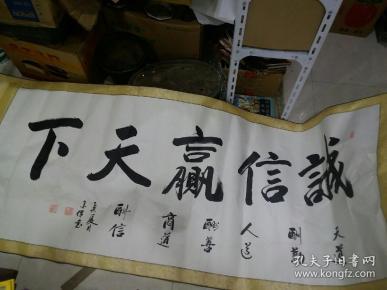 誠信贏天下
天道
酬勤
人道
酬善
商道
酬信
孔夫子旧书网
www.kongfz.com